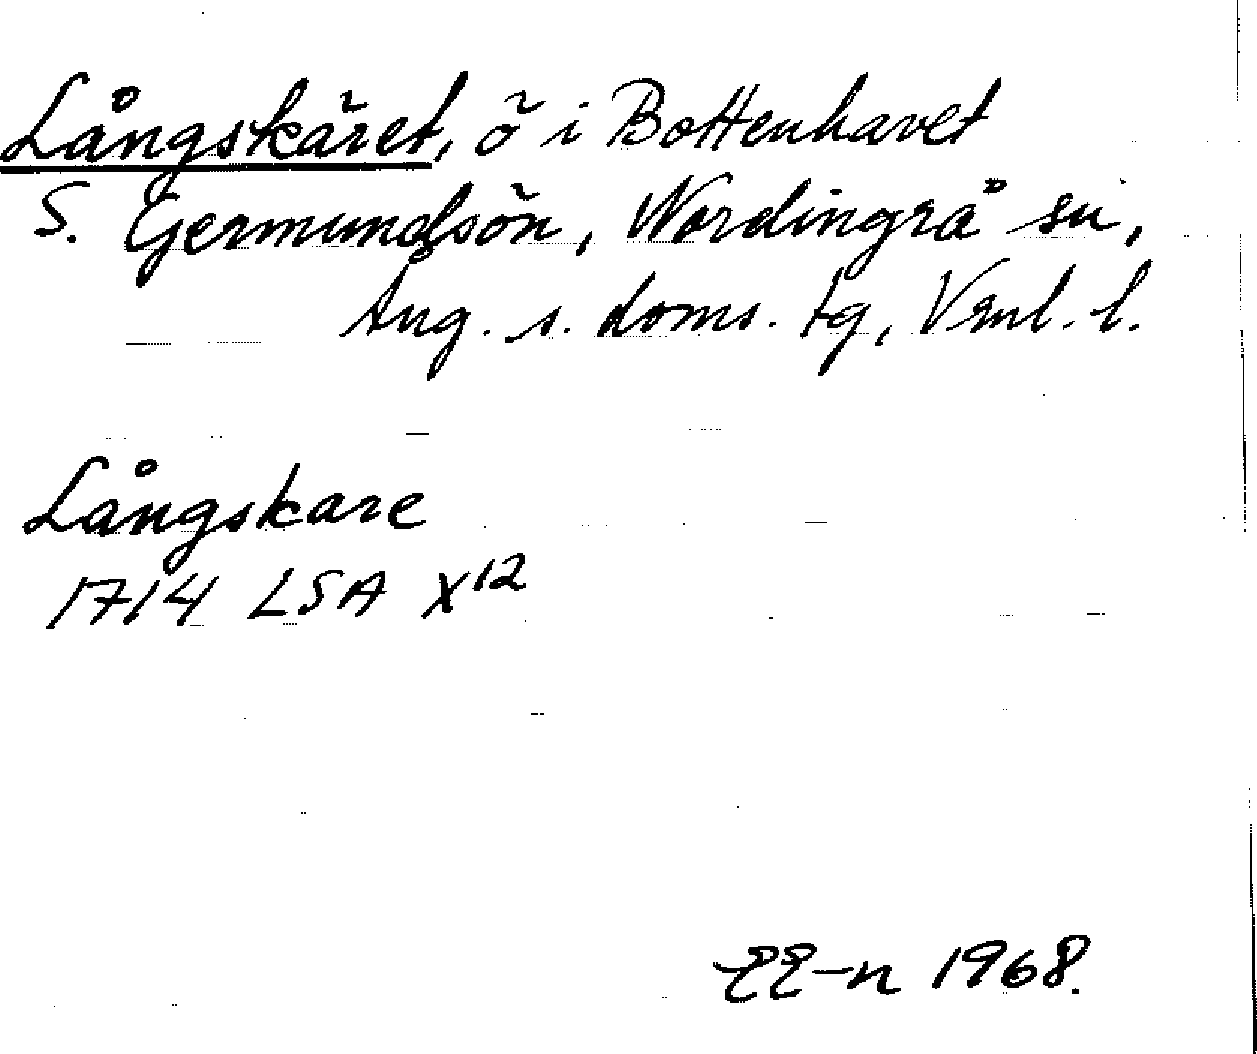 Långskäret, ö i Bottenhavet
S. Germundsön, Nordingrå sn,
Ång. s. doms. tg, Vrnl. l.
Långskare
1714 LSA X¹²
EE-n 1968.